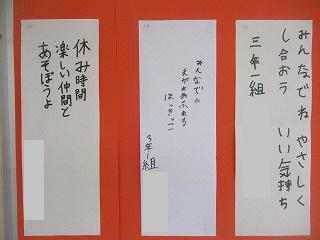 みんなでね やさしく
し合おう いい気持ち
三年一組
みんなでね
えがおあふれる
ほっきっこ
3年1組
休み時間
楽しい仲間と
あそぼうよ